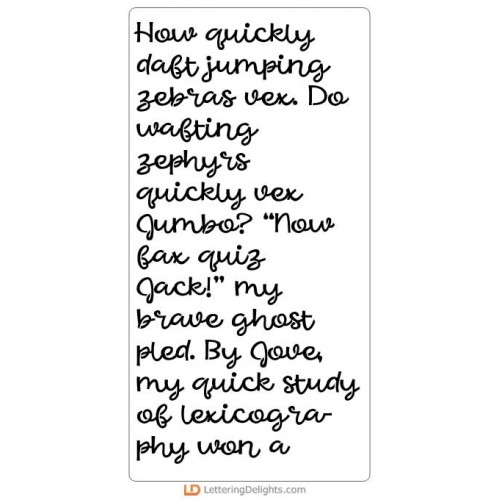 How quickly
daft jumping
zebras vex. Do
wafting
zephyrs
quickly vex
Jumbo? “Now
fax quiz
Jack!” my
brave ghost
pled. By Jove,
my quick study
of lexicogra-
phy won a
LD LetteringDelights.com